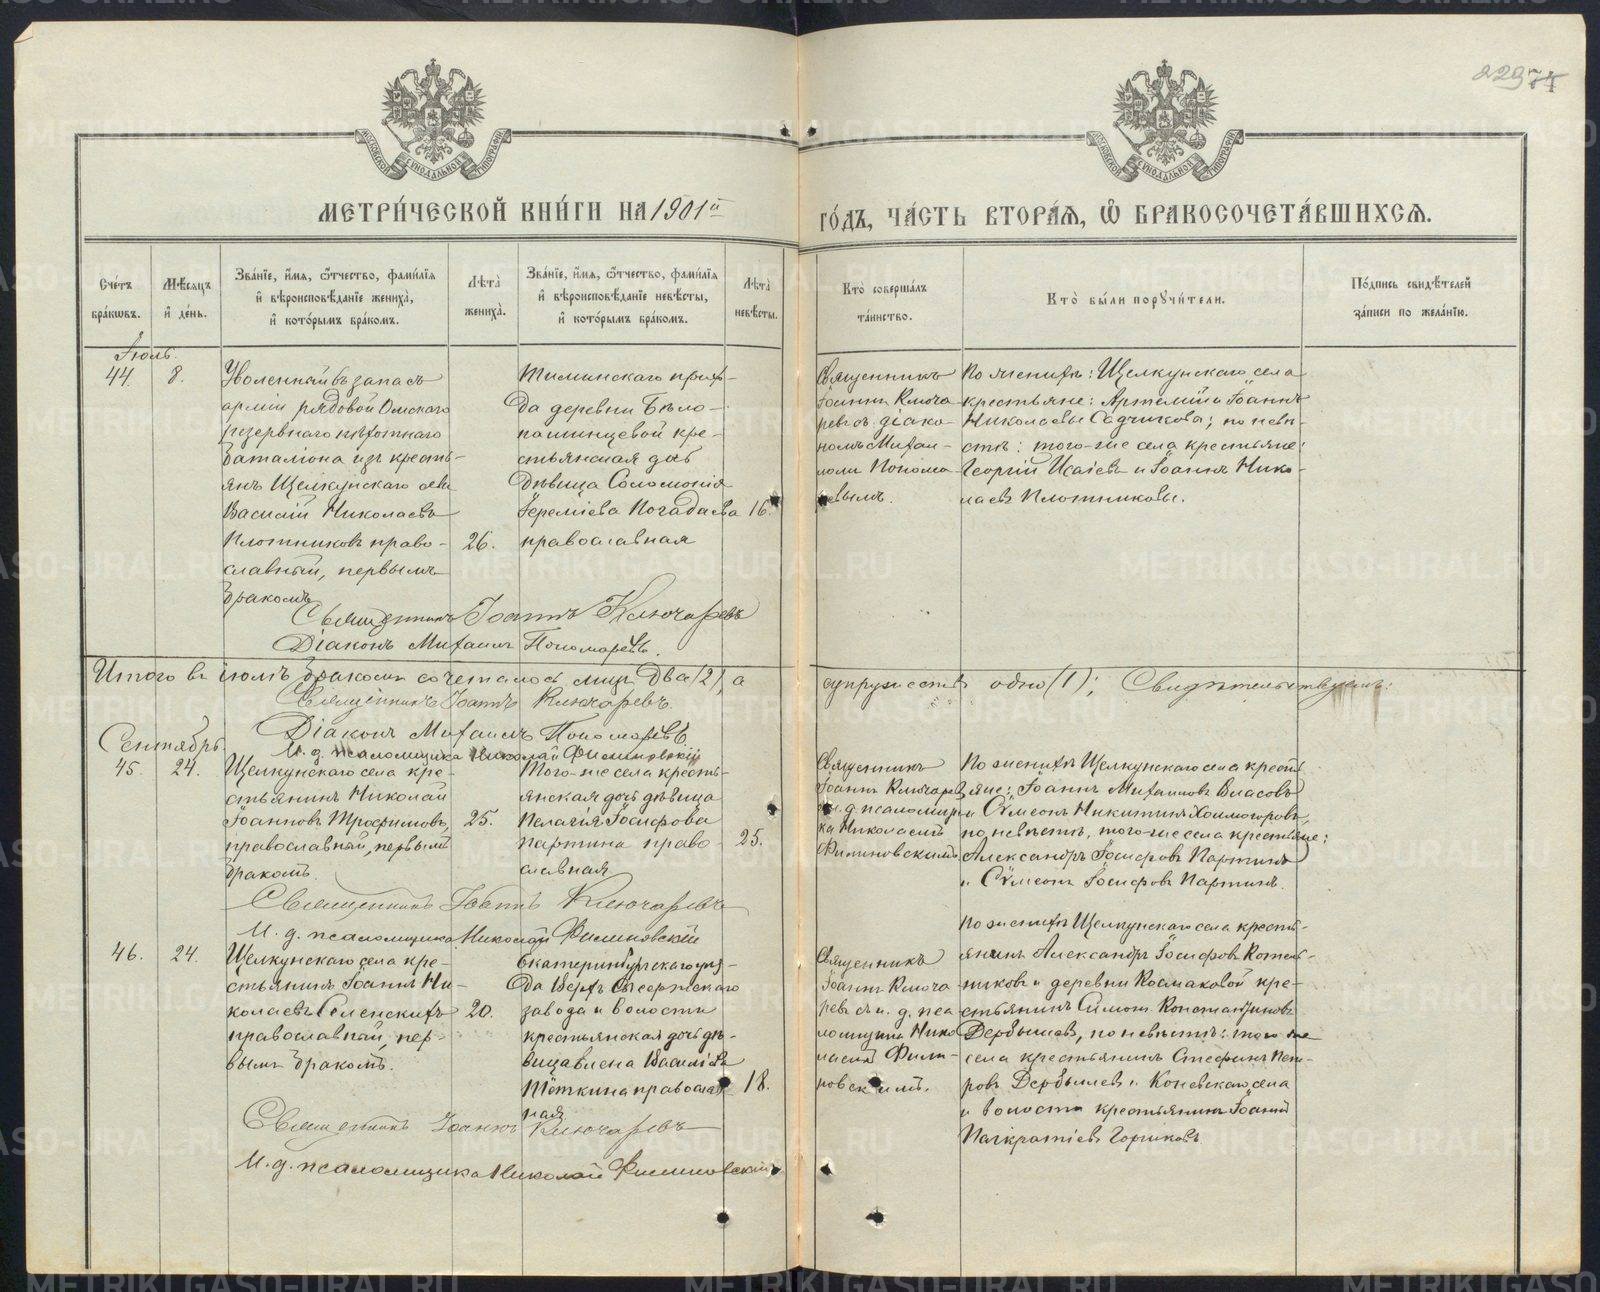 МЕТРИ́ЧЕСКОЙ КНИ́ГИ НА 1901й
ГО́ДЪ, ЧА́СТЬ ВТОРА́Я, Ѡ БРАКОСОЧЕТА́ВШИХСЯ.
229
МОСКОВСКОЙ СѴНОДАЛЬНОЙ ТИПОГРАФІИ
МОСКОВСКОЙ СѴНОДАЛЬНОЙ ТИПОГРАФІИ
Сче́тъ бра́кѡвъ.
Мѣ́сяцъ и́ де́нь.
Зва́нїе, и́мя, ѻ҆́тчество, фами́лїя и́ вѣроисповѣ́данїе жениха̀, и́ кото́рымъ бра́комъ.
Лѣта̀ жениха̀.
Зва́нїе, и́мя, ѻ҆́тчество, фами́лїя и́ вѣроисповѣ́данїе невѣ́сты, и́ кото́рымъ бра́комъ.
Лѣта̀ невѣ́сты.
Кто̀ соверша́лъ та́инство.
Кто̀ бы́ли порꙋчи́тели.
По́дпись свидѣ́телей за́писи по жела́нїю.
Іюль.
44.
8.
Уволенный въ запасъ
арміи рядовой Омскаго
резервнаго пѣхотнаго
баталіона изъ кресть-
янъ Щелкунскаго села
Василій Николаевъ
Плотниковъ право-
славный, первымъ
бракомъ
26.
деревни Бѣло-
крестьянская дочь
дѣвица Соломонія
Іереміева Погадаева
православная
16.
Священникъ
Іоаннъ Ключа
ревъ съ діако-
номъ Михаи-
ломъ Понома
ревымъ.
По женихѣ: Щелкунскаго села
крестьяне: Артемій и Іоаннъ
Николаевы Садчиковы; по невѣ-
стѣ: того-же села крестьяне:
Георгій Исаіевъ и Іоаннъ Нико-
лаевъ Плотниковы.
Священникъ Іоаннъ Ключаревъ
Діаконъ Михаилъ Пономаревъ.
Итого въ іюлѣ бракомъ сочеталось лицъ два (2), а
супружествъ одно (1); Свидѣтельствуемъ:
Священникъ Іоаннъ Ключаревъ.
Діаконъ Михаилъ Пономаревъ
И. д. псаломщика Николай Филиновскій
Сентябрь.
45.
24.
Щелкунскаго села кре-
стьянинъ Николай
Іоанновъ Трофимовъ,
православный, первымъ
бракомъ.
25.
Того-же села кресть-
янская дочь дѣвица
Пелагія Іосифова
Партина право-
славная
25.
Священникъ
Іоаннъ Ключаревъ
и. д. псаломщи
ка Николаемъ
Филиновскимъ
По женихѣ Щелкунскаго села кресть
яне: Іоаннъ Михаиловъ Власовъ
и Сѵмеонъ Никитинъ Холмогоровъ,
по невѣстѣ, того-же села крестьяне:
Александръ Іосифовъ Партинъ
и Сѵмеонъ Іосифовъ Партинъ.
Священникъ Іоаннъ Ключаревъ
И. д. псаломщика Николай Филиновскій
46.
24.
Щелкунскаго села кре-
стьянинъ Іоаннъ Ни-
колаевъ
православный, пер-
вымъ бракомъ.
20.
Екатеринбургскаго уѣз-
да Верхъ Сысертскаго
завода и волости
крестьянская дочь дѣ-
вица Елена Василіева
Тёткина православ
ная
18.
Священникъ
Іоаннъ Ключа
ревъ съ и. д. пса
ломщика Нико
лаемъ Фили-
новскимъ.
По женихѣ Щелкунскаго села кресть-
янинъ Александръ Іосифовъ Котель-
никовъ и деревни Космаковой кре-
стьянинъ Симонъ Константиновъ
Дербышевъ, по невѣстѣ: того же
села крестьянинъ Стефанъ Пет-
ровъ Дербышевъ и Коневскаго села
и волости крестьянинъ Іоаннъ
Панкратіевъ Горшковъ
Священникъ Іоаннъ Ключаревъ
И. д. псаломщика Николай Филиновскій
METRIKI.GASO-URAL.RU